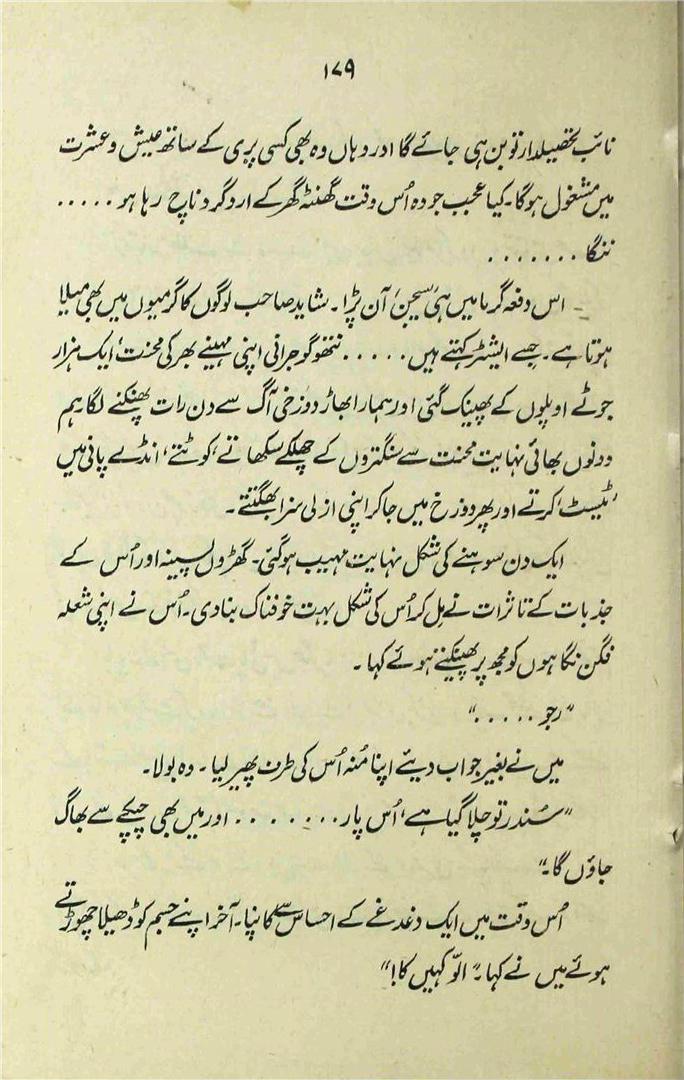 ۱۷۹
نائب تحصیلدار تو بن ہی جائے گا اور وہاں وہ بھی کسی پری کے ساتھ عیش و عشرت
میں مشغول ہوگا۔ کیا عجب جو وہ اُس وقت گھنٹہ گھر کے ارد گرد ناچ رہا ہو . . . . .
ننگا . . . . . . .
اس دفعہ گرما میں ہی ’سیجن‘ آن پڑا۔ شاید صاحب لوگوں کا گرمیوں میں بھی میلا
ہوتا ہے۔ جسے ایشٹر کہتے ہیں . . . . . نتھو گوجرانی اپنی مہینے بھر کی محنت، ایک ہزار
جوٹے اوپلوں کے پھینک گئی اور ہمارا بھاڑ دوزخی آگ سے دن رات پھنکنے لگا ہم
دونوں بھائی نہایت محنت سے سنگتروں کے چھلکے سکھاتے، کوٹتے، انڈے پانی میں
’ٹیسٹ‘ کرتے اور پھر دوزخ میں جا کر اپنی ازلی سزا بھگتتے۔
ایک دن سوہنے کی شکل نہایت مہیب ہوگئی۔ گھڑوں پسینہ اور اُس کے
جذبات کے تاثرات نے مِل کر اُس کی شکل بہت خوفناک بنا دی۔ اُس نے اپنی شعلہ
فگن نگاہوں کو مجھ پر پھینکتے ہوئے کہا۔
”رجو . . . . .“
میں نے بغیر جواب دیئے اپنا مُنہ اُس کی طرف پھیر لیا۔ وہ بولا۔
”سُندر تو چلا گیا ہے، اُس پار . . . . . . . اور میں بھی چپکے سے بھاگ
جاؤں گا۔“
اُس وقت میں ایک دغدغے کے احساس سے کانپا۔ آخر اپنے جسم کو ڈھیلا چھوڑتے
ہوئے میں نے کہا۔ ”الّو کہیں کا!“